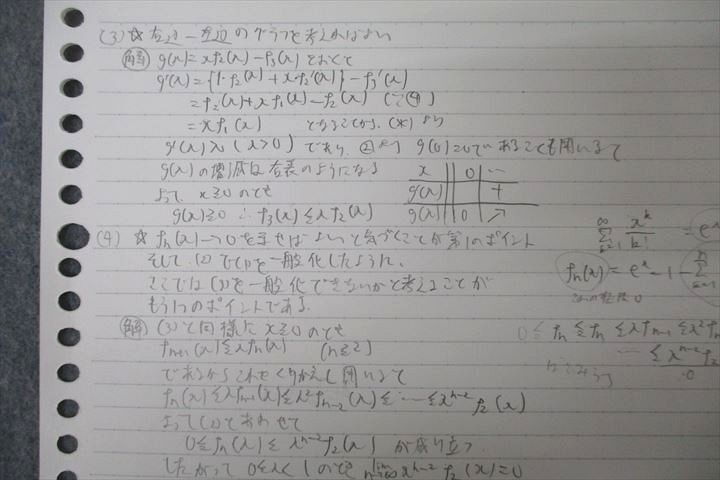 (3) ☆ 右辺－左辺のグラフを考えればよい
(解) g(x)=xf₂(x)-f₃(x) とおくと
g'(x)={1·f₂(x)+xf₂'(x)}-f₃'(x)
=f₂(x)+xf₁(x)-f₂(x) (∵④)
=xf₁(x) となることから, (*) より
g'(x)>0 (x>0) であり, ②より g(0)=0であることも用いて
g(x)の増減は右表のようになる
x 0 …
よって x≧0のとき
g'(x) +
g(x)≧0 ∴ f₃(x)≦xf₂(x)
g(x) 0 ↗
(4) ☆ fn(x)→0を示せばよいと気づくことが第1のポイント
そして, (2)で(1)を一般化したように,
ここでは(3)を一般化できないかと考えることが
もう1つのポイントである.
(解) (3)と同様に x≧0のとき
fn+1(x)≦xfn(x) (n≧2)
であるからこれをくりかえし用いて
fn(x)≦xfn-1(x)≦x²fn-2(x)≦…≦xⁿ⁻²f₂(x)
よって(2)とあわせて
0≦fn(x)≦xⁿ⁻²f₂(x) が成り立つ
したがって 0≦x<1のとき lim xⁿ⁻²f₂(x)=0
∞ Σ k=1 xᵏ/k! = eˣ
fn(x)=eˣ-1-Σ k=1
0≦fn≦xfn-1≦x²fn
…≦xⁿ⁻²f₂
0